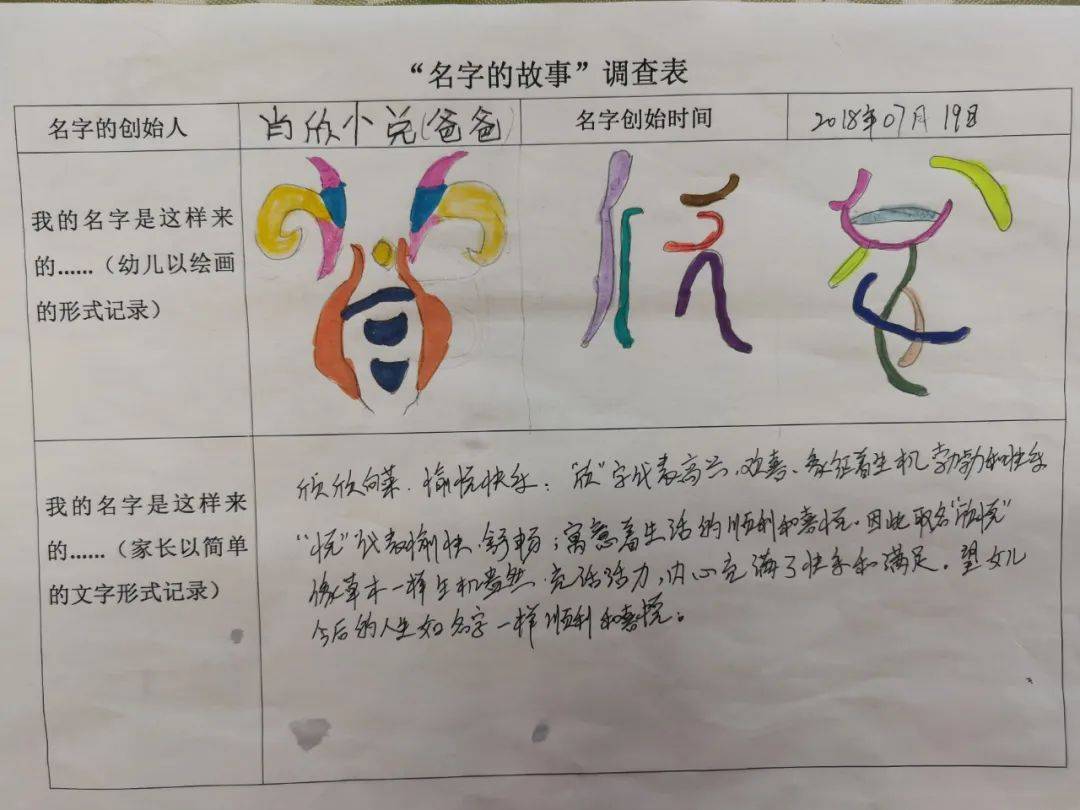 “名字的故事”调查表
名字的创始人
肖欣小兑(爸爸)
名字创始时间
2018年07月19日
我的名字是这样来
的......（幼儿以绘画
的形式记录）
我的名字是这样来
的......（家长以简单
的文字形式记录）
欣欣向荣、愉悦快乐：“欣”字代表高兴、欢喜、象征着生机勃勃和快乐
“悦”代表愉快、舒畅；寓意着生活的顺利和喜悦。因此取名“欣悦”
像草木一样生机盎然、充活活力，内心充满了快乐和满足。望女儿
今后的人生如名字一样顺利和喜悦。